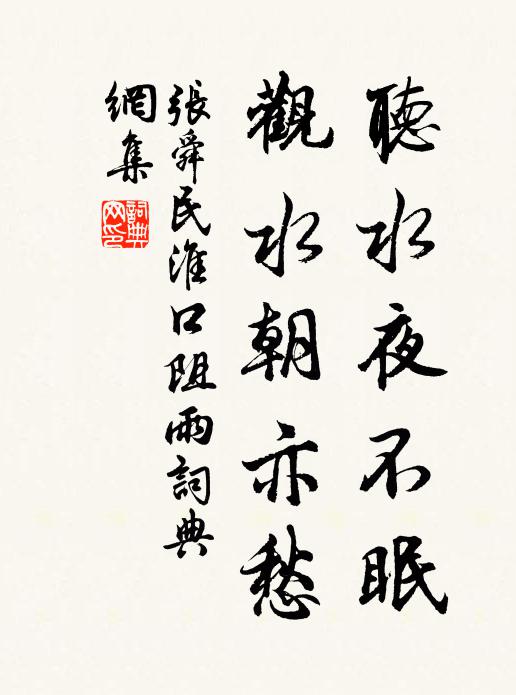 聽水夜不眠
觀水朝亦愁
張舜民淮口阻雨詞典
網集
詞典網印